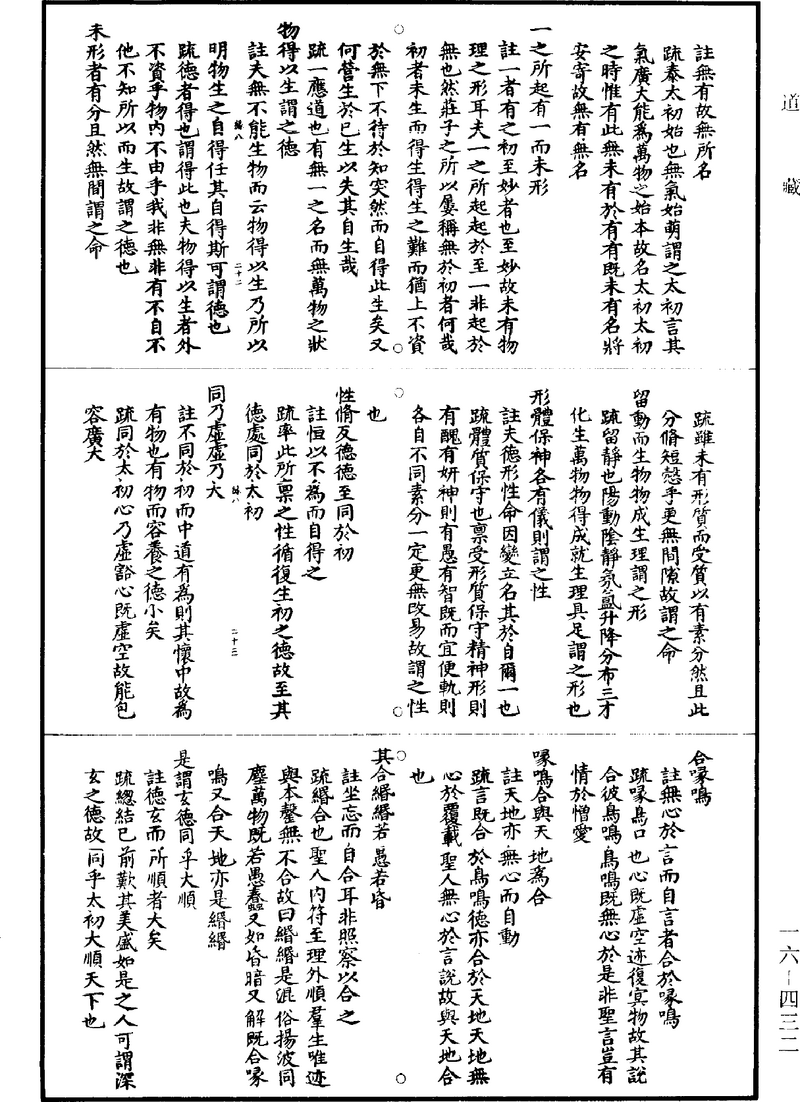 道藏
註無有故無所名
疏泰太初始也無氣始萌謂之太初言其
氣廣大能為萬物之始本故名太初太初
之時惟有此無未有於有有既未有名將
安寄故無有無名
一之所起有一而未形
註一者有之初至妙者也至妙故未有物
理之形耳夫一之所起起於至一非起於
無也然莊子之所以屢稱無於初者何哉
初者未生而得生得生之難而猶上不資
於無下不待於知突然而自得此生矣又
何營生於已生以失其自生哉
疏一應道也有無一之名而無萬物之狀
物得以生謂之德
註夫無不能生物而云物得以生乃所以
明物生之自得任其自得斯可謂德也
疏德者得也謂得此也夫物得以生者外
不資乎物內不由乎我非無非有不自不
他不知所以而生故謂之德也
未形者有分且然無間謂之命
疏雖未有形質而受質以有素分然且此
分脩短慤乎更無間隙故謂之命
留動而生物物成生理謂之形
疏留靜也陽動陰靜氛氳升降分布三才
化生萬物物得成就生理具足謂之形也
形體保神各有儀則謂之性
註夫德形性命因變立名其於自爾一也
疏體質保守也禀受形質保守精神形則
有醜有妍神則有愚有智既而宜便軌則
各自不同素分一定更無改易故謂之性
也
性脩反德德至同於初
註恒以不為而自得之
疏率此所禀之性循復生初之德故至其
德處同於太初
同乃虛虛乃大
註不同於初而中道有為則其懷中故為
有物也有物而容養之德小矣
疏同於太初心乃虛豁心既虛空故能包
容廣大
合喙鳴
註無心於言而自言者合於喙鳴
疏喙鳥口也心既虛空迹復冥物故其說
合彼鳥鳴鳥鳴既無心於是非聖言豈有
情於憎愛
喙鳴合與天地為合
註天地亦無心而自動
疏言既合於鳥鳴德亦合於天地天地無
心於覆載聖人無心於言說故與天地合
也
其合緡緡若愚若昏
註坐忘而自合耳非照察以合之
疏緡合也聖人內符至理外順羣生唯迹
與本罄無不合故曰緡緡是混俗揚波同
塵萬物既若愚惷又如昏暗又解既合喙
鳴又合天地亦是緡緡
是謂玄德同乎大順
註德玄而所順者大矣
疏總結已前歎其美盛如是之人可謂深
玄之德故同乎太初大順天下也
一六-四三二